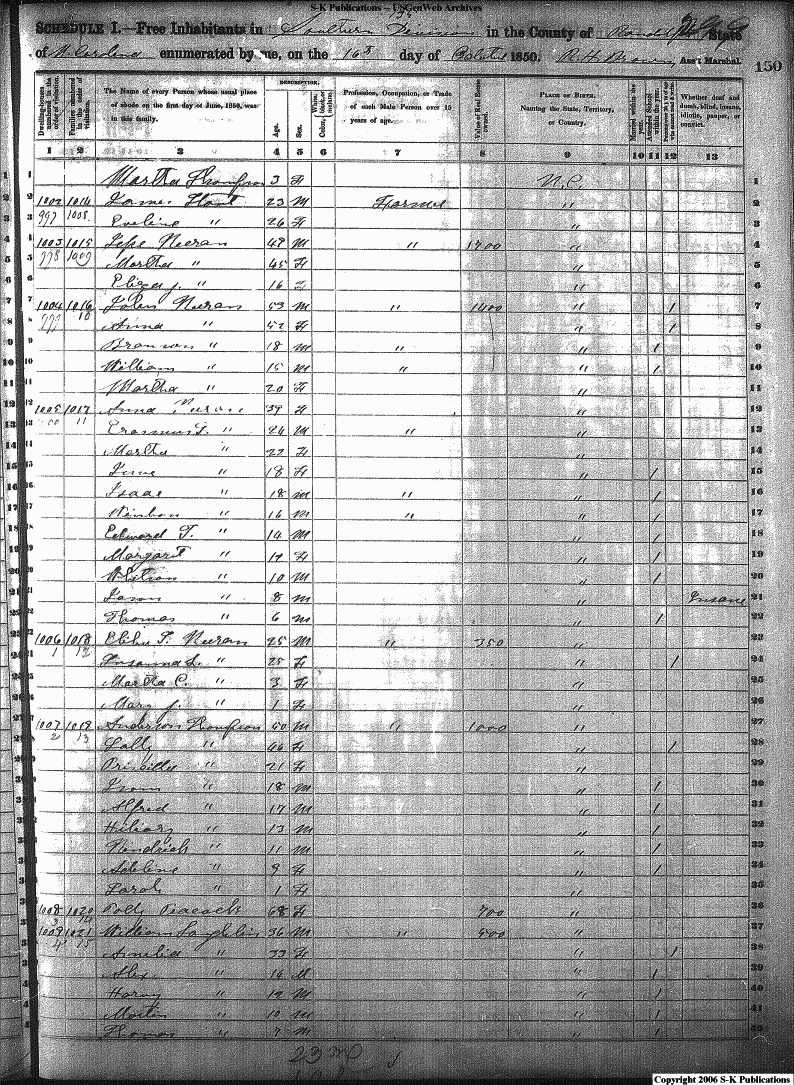 S-K Publications – USGenWeb Archives
SCHEDULE I.—Free Inhabitants in Southern Division in the County of Randolph State
of N. Carolina enumerated by me, on the 16th day of October 1850. R. H. Brown Ass't Marshal. 150
Dwelling-houses numbered in the order of visitation.
Families numbered in the order of visitation.
The Name of every Person whose usual place of abode on the first day of June, 1850, was in this family.
DESCRIPTION.
Age.
Sex.
Color, White, black, or mulatto.
Profession, Occupation, or Trade of each Male Person over 15 years of age.
Value of Real Estate owned.
PLACE OF BIRTH. Naming the State, Territory, or Country.
Married within the year.
Attended School within the year.
Persons over 20 y'rs of age who cannot read & write.
Whether deaf and dumb, blind, insane, idiotic, pauper, or convict.
1 2 3 4 5 6 7 8 9 10 11 12 13
1 Martha Thompson 3 F N.C. 1
2 1002 1014 James 23 M Farmer " 2
3 997 1008 Eveline " 26 F " 3
4 1003 1015 48 M " 1700 " 4
5 998 1009 Martha " 45 F " 5
6 " 16 " 6
7 1004 1016 John 53 M " 1400 " 1 7
8 999 10 Anna " 52 F " 1 8
9 Branson " 18 M " " 1 9
10 William " 15 M " " 1 10
11 Martha " 20 F " 11
12 1005 1017 Anna 39 F " 12
13 00 11 Erasmus " 24 M " " 13
14 Martha " 22 F " 14
15 Jane " 18 F " 1 15
16 Isaac " 18 M " " 1 16
17 " 16 M " " 1 17
18 Edward T. " 14 M " 1 18
19 Margaret " 17 F " 1 19
20 " 10 M " 1 20
21 Jason " 8 M " Insane 21
22 Thomas " 6 M " 1 22
23 1006 1018 25 M " 350 " 23
24 1 12 Susanna L. " 25 F " 1 24
25 Martha C. " 3 F " 25
26 Mary J. " 1 F " 26
27 1007 1019 Anderson Thompson 50 M " 1000 " 27
28 2 13 Sally " 46 F " 1 28
29 Priscilla " 21 F " 29
30 " 18 M " 1 30
31 Alfred " 17 M " 1 31
32 " 13 M " 1 32
33 Kendrick " 11 M " 1 33
34 Adeline " 9 F " 1 34
35 Sarah " 1 F " 35
36 1008 1020 Polly Peacock 68 F 700 " 36
37 1009 1021 William 36 M " 500 " 37
38 4 15 Amelia " 33 F " 1 38
39 Alex " 14 M " 1 39
40 " 12 M " 1 40
41 Martin " 10 M " 1 41
42 Thomas " 7 M " 1 42
23 m
Copyright 2006 S-K Publications